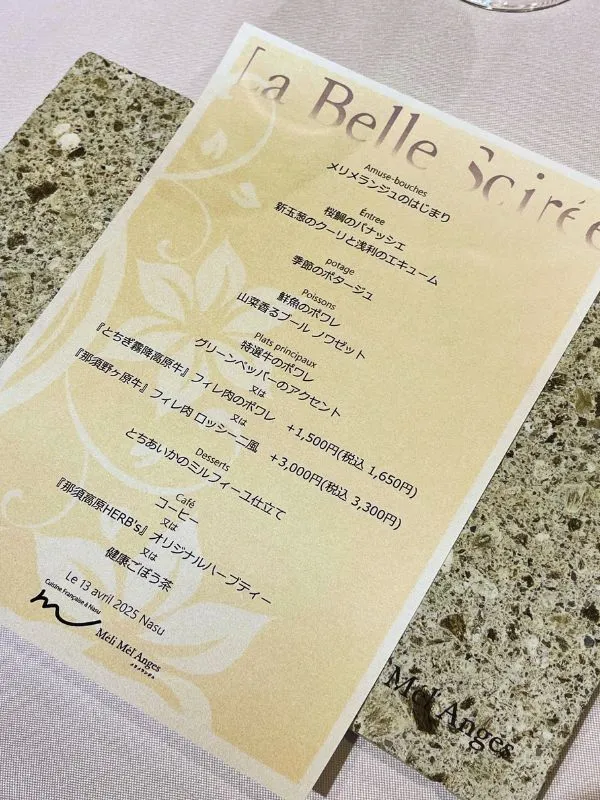 La Belle Soirée
Amuse-bouches
メリメランジュのはじまり
Éntree
桜鯛のパナッシェ
新玉葱のクーリと浅利のエキューム
potage
季節のポタージュ
Poissons
鮮魚のポワレ
山菜香るブール ノワゼット
Plats principaux
特選牛のポワレ
グリーンペッパーのアクセント
又は
『とちぎ霧降高原牛』フィレ肉のポワレ +1,500円(税込 1,650円)
又は
『那須野ヶ原牛』フィレ肉 ロッシーニ風 +3,000円(税込 3,300円)
Desserts
とちあいかのミルフィーユ仕立て
Café
コーヒー
又は
『那須高原HERB's』オリジナルハーブティー
又は
健康ごぼう茶
Le 13 avril 2025 Nasu
Cuisine Française à Nasu
Méli Mél Anges
メリメランジュ
Mél Anges